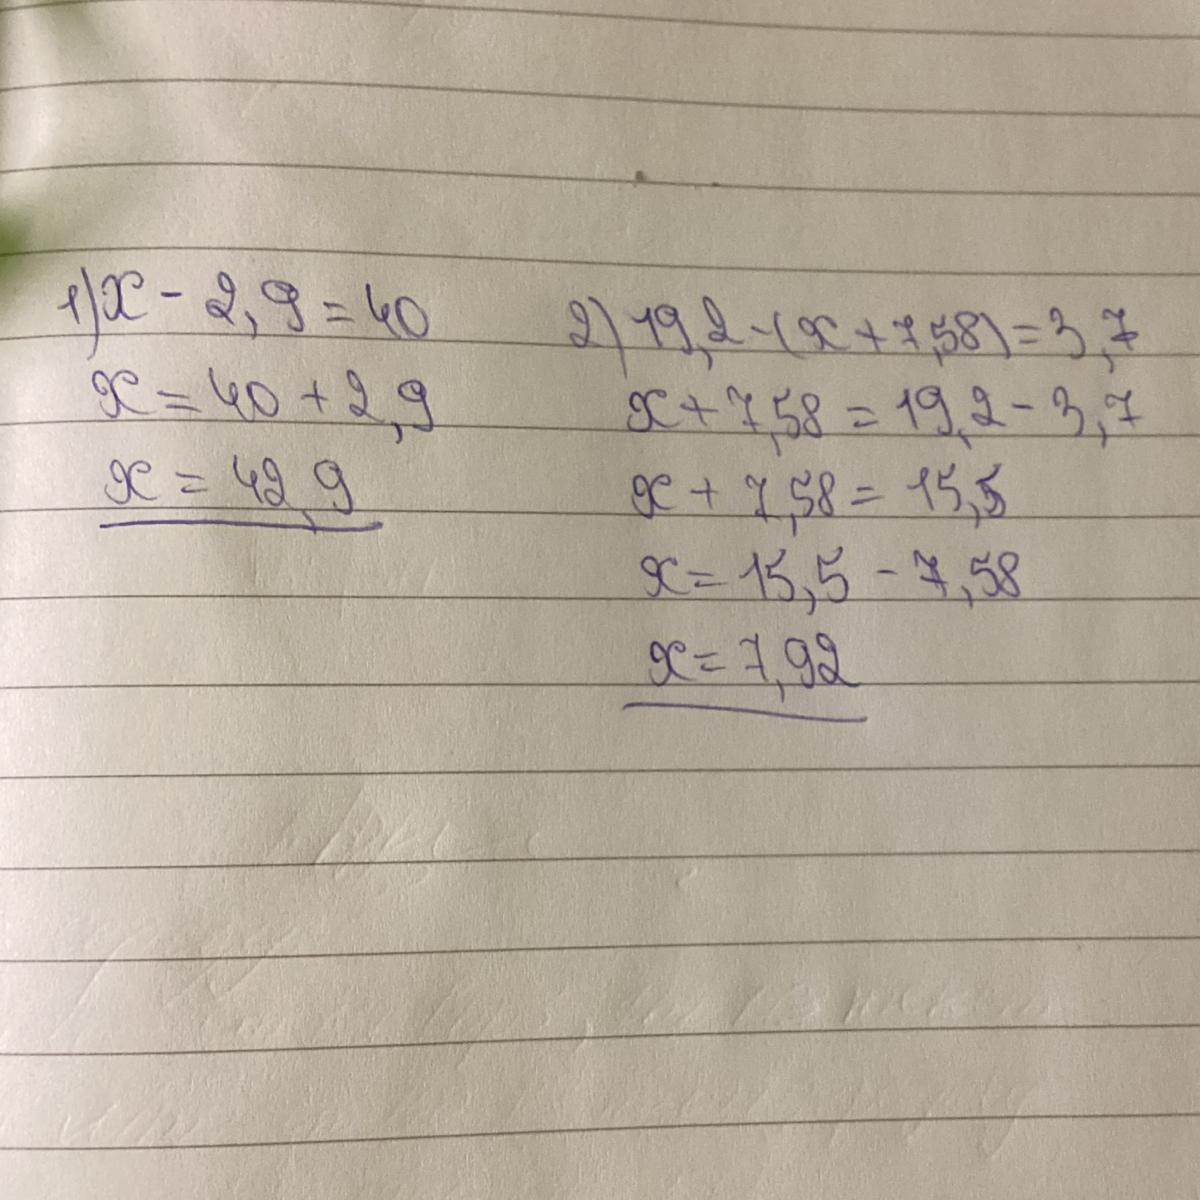 1) x - 2,9 = 40
x = 40 + 2,9
x = 42,9
2) 19,2 - (x + 7,58) = 3,7
x + 7,58 = 19,2 - 3,7
x + 7,58 = 15,5
x = 15,5 - 7,58
x = 7,92